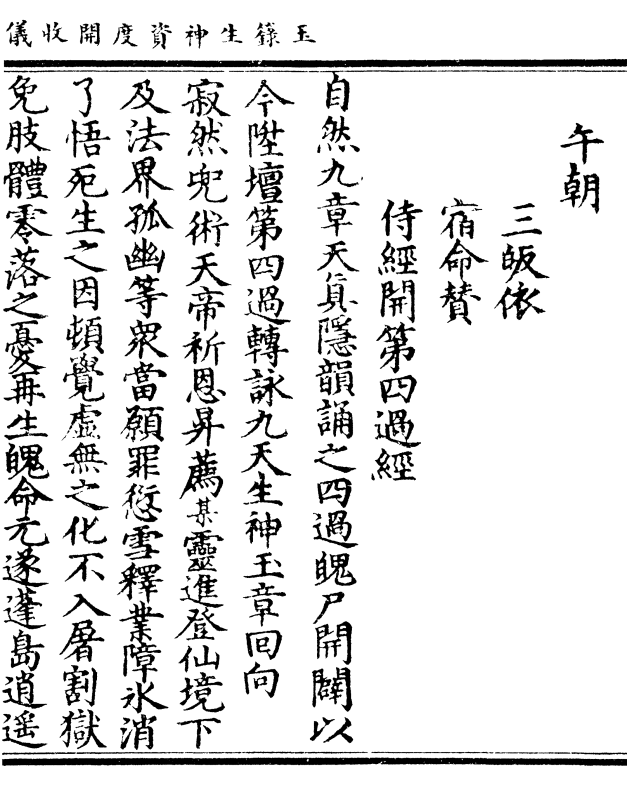 玉籙生神資度開收儀
午朝
三皈依
宿命贊
侍經開第四過經
自然九章天真隱韻誦之四過魄尸開闢以
今陞壇第四過轉詠九天生神玉章回向
寂然兜術天帝祈恩昇薦某靈進登仙境下
及法界孤幽等衆當願罪愆雪釋業障氷消
了悟死生之因頓覺虛無之化不入屠割獄
免肢體零落之憂再生魄命元遂蓬島逍遥